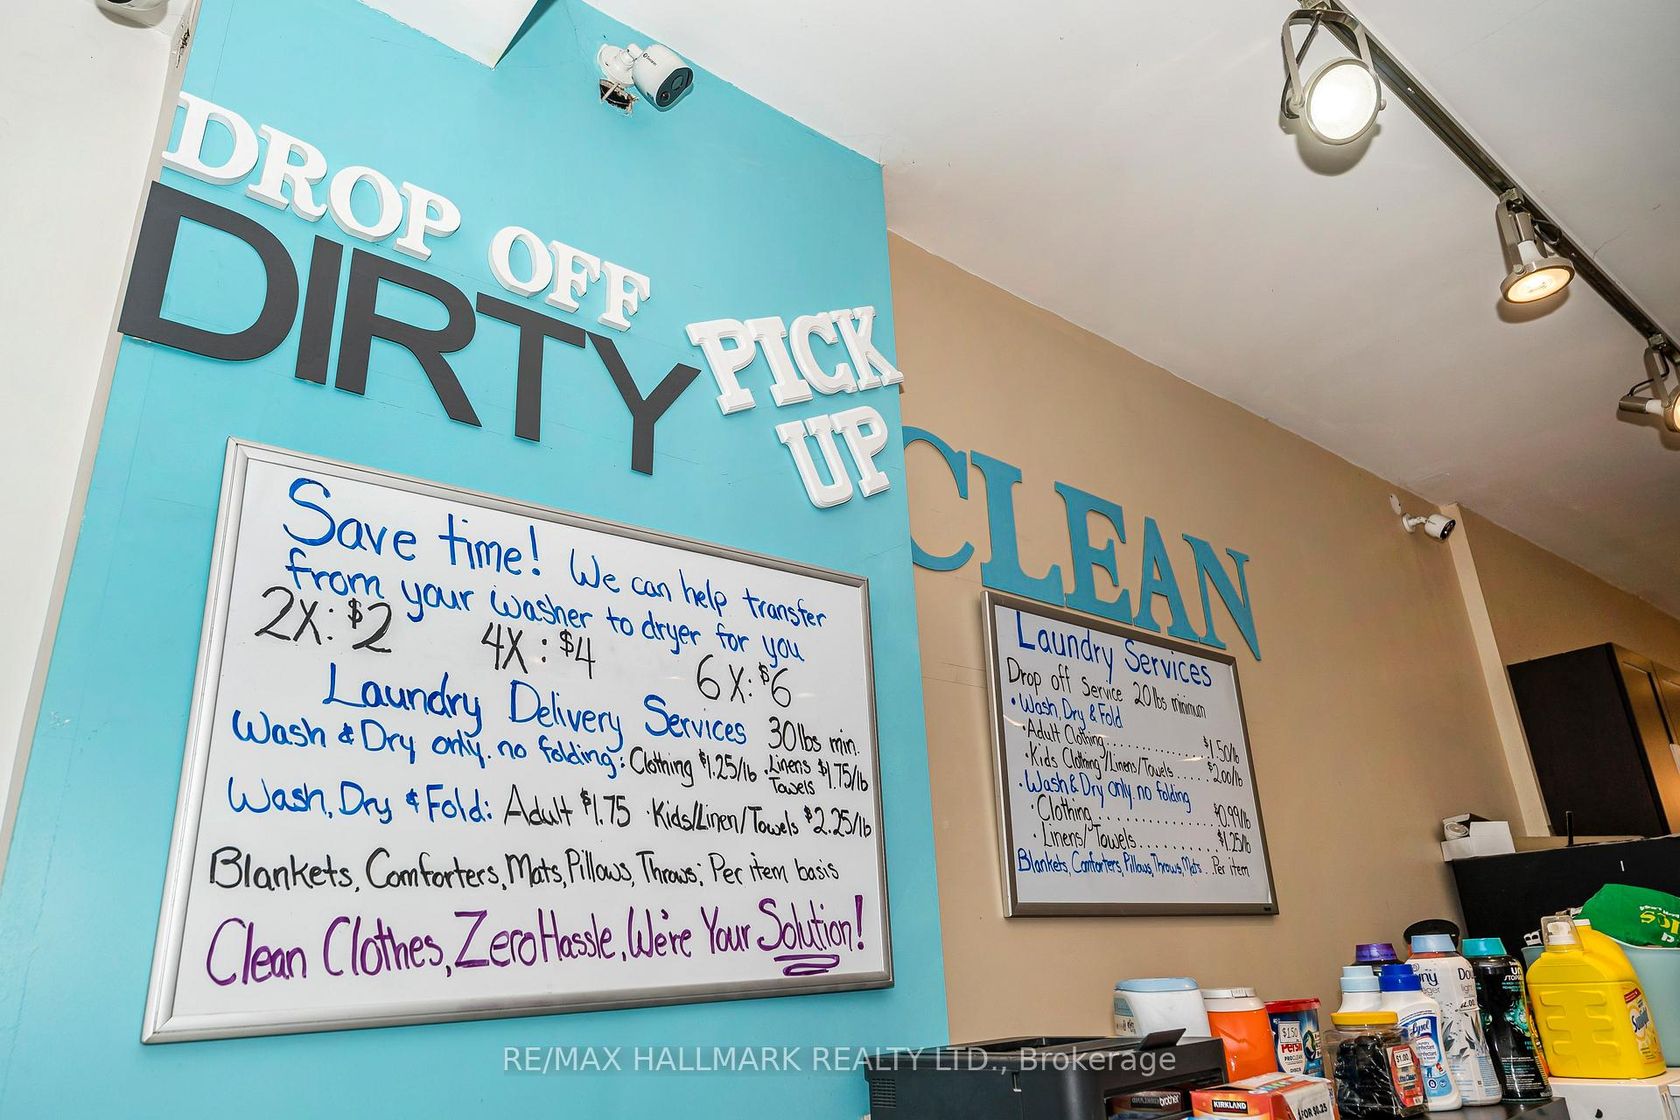 DROP OFF
DIRTY
PICK
UP
CLEAN
Save time! We can help transfer
from your washer to dryer for you
2X: $2 4X: $4 6X: $6
Laundry Delivery Services 30lbs min.
Wash & Dry only. no folding: Clothing $1.25/lb . Linens $1.75/lb
Towels
Wash, Dry & Fold: Adult $1.75 · Kids/Linen/Towels $2.25/lb
Blankets, Comforters, Mats, Pillows, Throws: Per item basis
Clean Clothes, Zero Hassle, We're Your Solution!
Laundry Services
Drop off Service 20lbs minimum
• Wash, Dry & Fold
• Adult Clothing........... $1.50/lb
• Kids Clothing/Linens/Towels..... $2.00/lb
• Wash & Dry only no folding
• Clothing................ $0.99/lb
• Linens/Towels........... $1.25/lb
Blankets, Comforters, Pillows, Throws, Mats.. Per item
$1.50
Persil
DISCS
Lysol
$1.00
KIRKLAND
FOR $0.25
brother
RE/MAX HALLMARK REALTY LTD., Brokerage